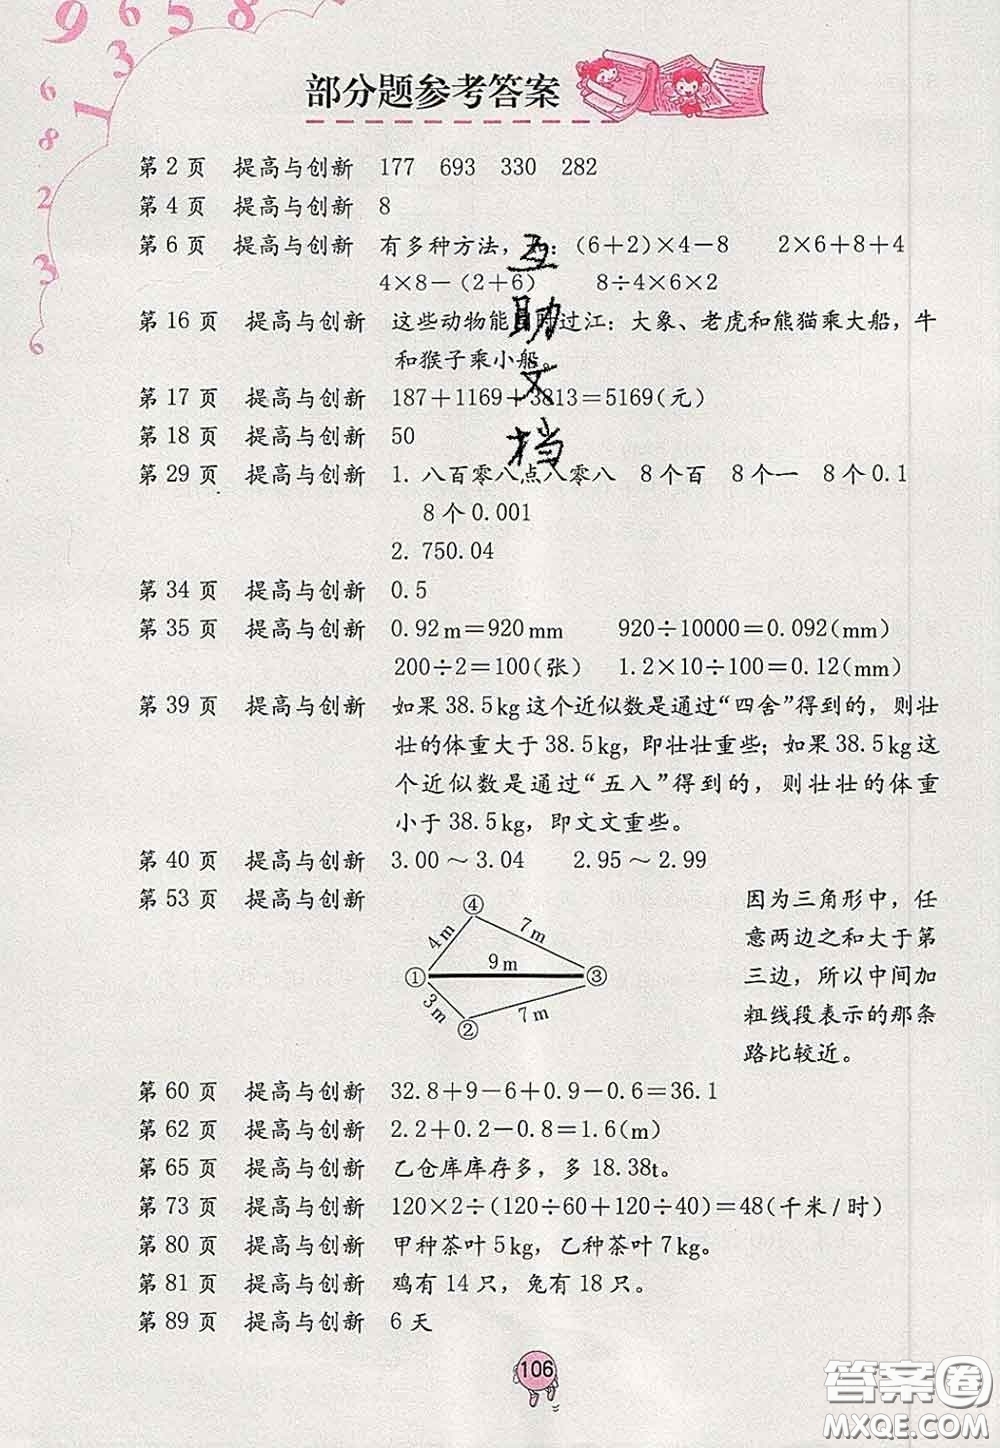 部分题参考答案
第2页 提高与创新 177 693 330 282
第4页 提高与创新 8
第6页 提高与创新 有多种方法，：(6+2)×4－8 2×6+8+4
4×8－(2+6) 8÷4×6×2
第16页 提高与创新 这些动物能过江：大象、老虎和熊猫乘大船，牛
和猴子乘小船。
第17页 提高与创新 187+1169+3813=5169(元)
第18页 提高与创新 50
第29页 提高与创新 1. 八百零八点八零八 8个百 8个一 8个0.1
8个0.001
2. 750.04
第34页 提高与创新 0.5
第35页 提高与创新 0.92m=920mm 920÷10000=0.092(mm)
200÷2=100(张) 1.2×10÷100=0.12(mm)
第39页 提高与创新 如果38.5kg这个近似数是通过“四舍”得到的，则壮
壮的体重大于38.5kg，即壮壮重些；如果38.5kg这
个近似数是通过“五入”得到的，则壮壮的体重
小于38.5kg，即文文重些。
第40页 提高与创新 3.00～3.04 2.95～2.99
第53页 提高与创新
④
4m 7m
① 9m ③
3m 7m
②
因为三角形中，任
意两边之和大于第
三边，所以中间加
粗线段表示的那条
路比较近。
第60页 提高与创新 32.8+9－6+0.9－0.6=36.1
第62页 提高与创新 2.2+0.2－0.8=1.6(m)
第65页 提高与创新 乙仓库库存多，多18.38t。
第73页 提高与创新 120×2÷(120÷60+120÷40)=48(千米/时)
第80页 提高与创新 甲种茶叶5kg，乙种茶叶7kg。
第81页 提高与创新 鸡有14只，兔有18只。
第89页 提高与创新 6天
106
互助文档
答案圈
MXQE.COM